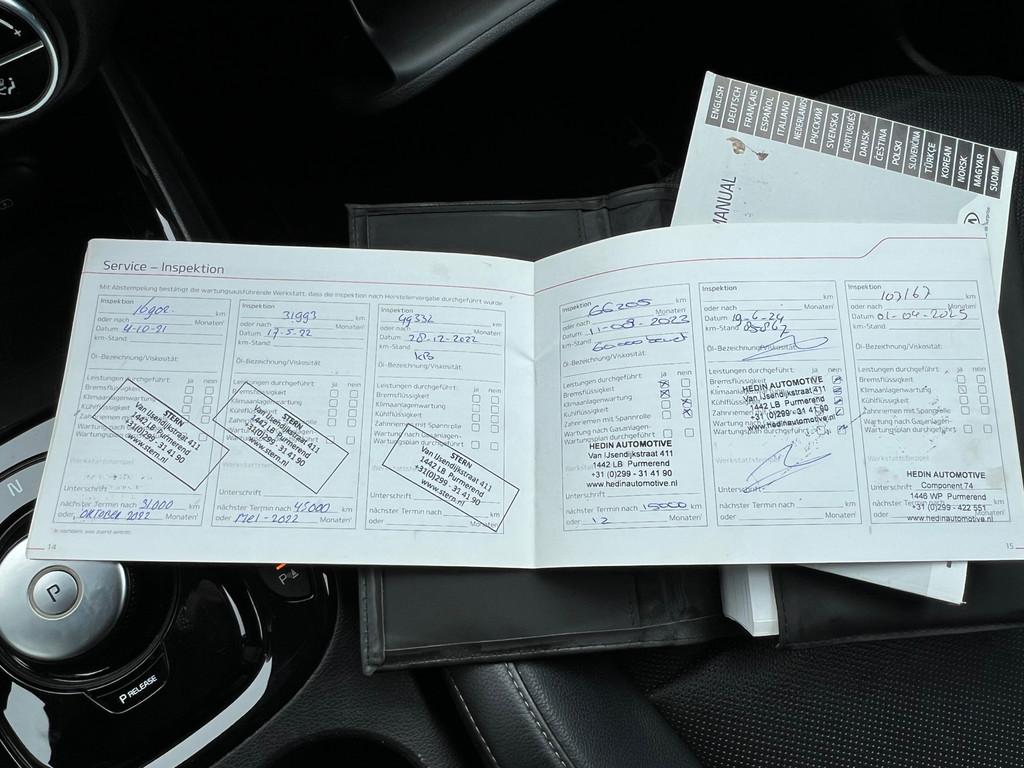 Service – Inspektion
Mit Abstempelung bestätigt die wartungsausführende Werkstatt, dass die Inspektion nach Herstellervorgabe durchgeführt wurde.
Inspektion
km
oder nach Monaten¹
Datum 4-10-21
km-Stand
Öl-Bezeichnung/Viskosität:
Leistungen durchgeführt: ja nein
Bremsflüssigkeit
Klimaanlagenwartung
Kühlflüssigkeit
STERN
Van IJsendijkstraat 411
1442 LB Purmerend
+31(0)299 - 31 41 90
www.stern.nl
nächster Termin nach 31000 km
oder OKTOBER 2022 Monaten¹
14
Inspektion
31993 km
oder nach Monaten¹
Datum 17-5-22
km-Stand
Öl-Bezeichnung/Viskosität:
Leistungen durchgeführt: ja nein
Bremsflüssigkeit
Klimaanlagenwartung
Kühlflüssigkeit
STERN
Van IJsendijkstraat 411
1442 LB Purmerend
+31(0)299 - 31 41 90
www.stern.nl
Unterschrift
nächster Termin nach 45000 km
oder MEI-2022 Monaten¹
Inspektion
49332 km
oder nach Monaten¹
Datum 28-12-2022
km-Stand
KB
Öl-Bezeichnung/Viskosität:
Leistungen durchgeführt: ja nein
Bremsflüssigkeit
Klimaanlagenwartung
Kühlflüssigkeit
Zahnriemen mit Spannrolle
Wartung nach Gasanlagen-
Wartungsplan durchgeführt
STERN
Van IJsendijkstraat 411
1442 LB Purmerend
+31(0)299 - 31 41 90
www.stern.nl
Unterschrift
nächster Termin nach km
oder Monaten¹
Inspektion
66205 km
oder nach Monaten¹
Datum 11-08-2023
km-Stand 60.000 beurt
Öl-Bezeichnung/Viskosität:
Leistungen durchgeführt: ja nein
Bremsflüssigkeit
Klimaanlagenwartung
Kühlflüssigkeit
Zahnriemen mit Spannrolle
Wartung nach Gasanlagen-
Wartungsplan durchgeführt
HEDIN AUTOMOTIVE
Van IJsendijkstraat 411
1442 LB Purmerend
+31 (0)299 - 31 41 90
www.hedinautomotive.nl
Unterschrift
nächster Termin nach 15000 km
oder 12 Monaten¹
Inspektion
km
oder nach Monaten¹
Datum 19-6-24
km-Stand 85867
Öl-Bezeichnung/Viskosität:
Leistungen durchgeführt: ja nein
Bremsflüssigkeit
Klimaanlagenwartung
Kühlflüssigkeit
Zahnriemen mit Spannrolle
Wartung nach Gasanlagen-
Wartungsplan durchgeführt
HEDIN AUTOMOTIVE
Van IJsendijkstraat 411
1442 LB Purmerend
+31 (0)299 - 31 41 90
www.hedinautomotive.nl
Unterschrift
nächster Termin nach km
oder Monaten¹
Inspektion
103167 km
oder nach Monaten¹
Datum 01-04-2025
km-Stand
Öl-Bezeichnung/Viskosität:
Leistungen durchgeführt: ja nein
Bremsflüssigkeit
Klimaanlagenwartung
Kühlflüssigkeit
Zahnriemen mit Spannrolle
Wartung nach Gasanlagen-
Wartungsplan durchgeführt
HEDIN AUTOMOTIVE
Component 74
1446 WP Purmerend
+31 (0)299 - 422 551
www.hedinautomotive.nl
Unterschrift
nächster Termin nach km
oder Monaten¹
15
ENGLISH
DEUTSCH
FRANÇAIS
ESPAÑOL
ITALIANO
NEDERLANDS
РУССКИЙ
SVENSKA
PORTUGUÊS
DANSK
ČEŠTINA
POLSKI
SLOVENČINA
TÜRKÇE
KOREAN
NORSK
MAGYAR
SUOMI
MANUAL
N
P
P RELEASE